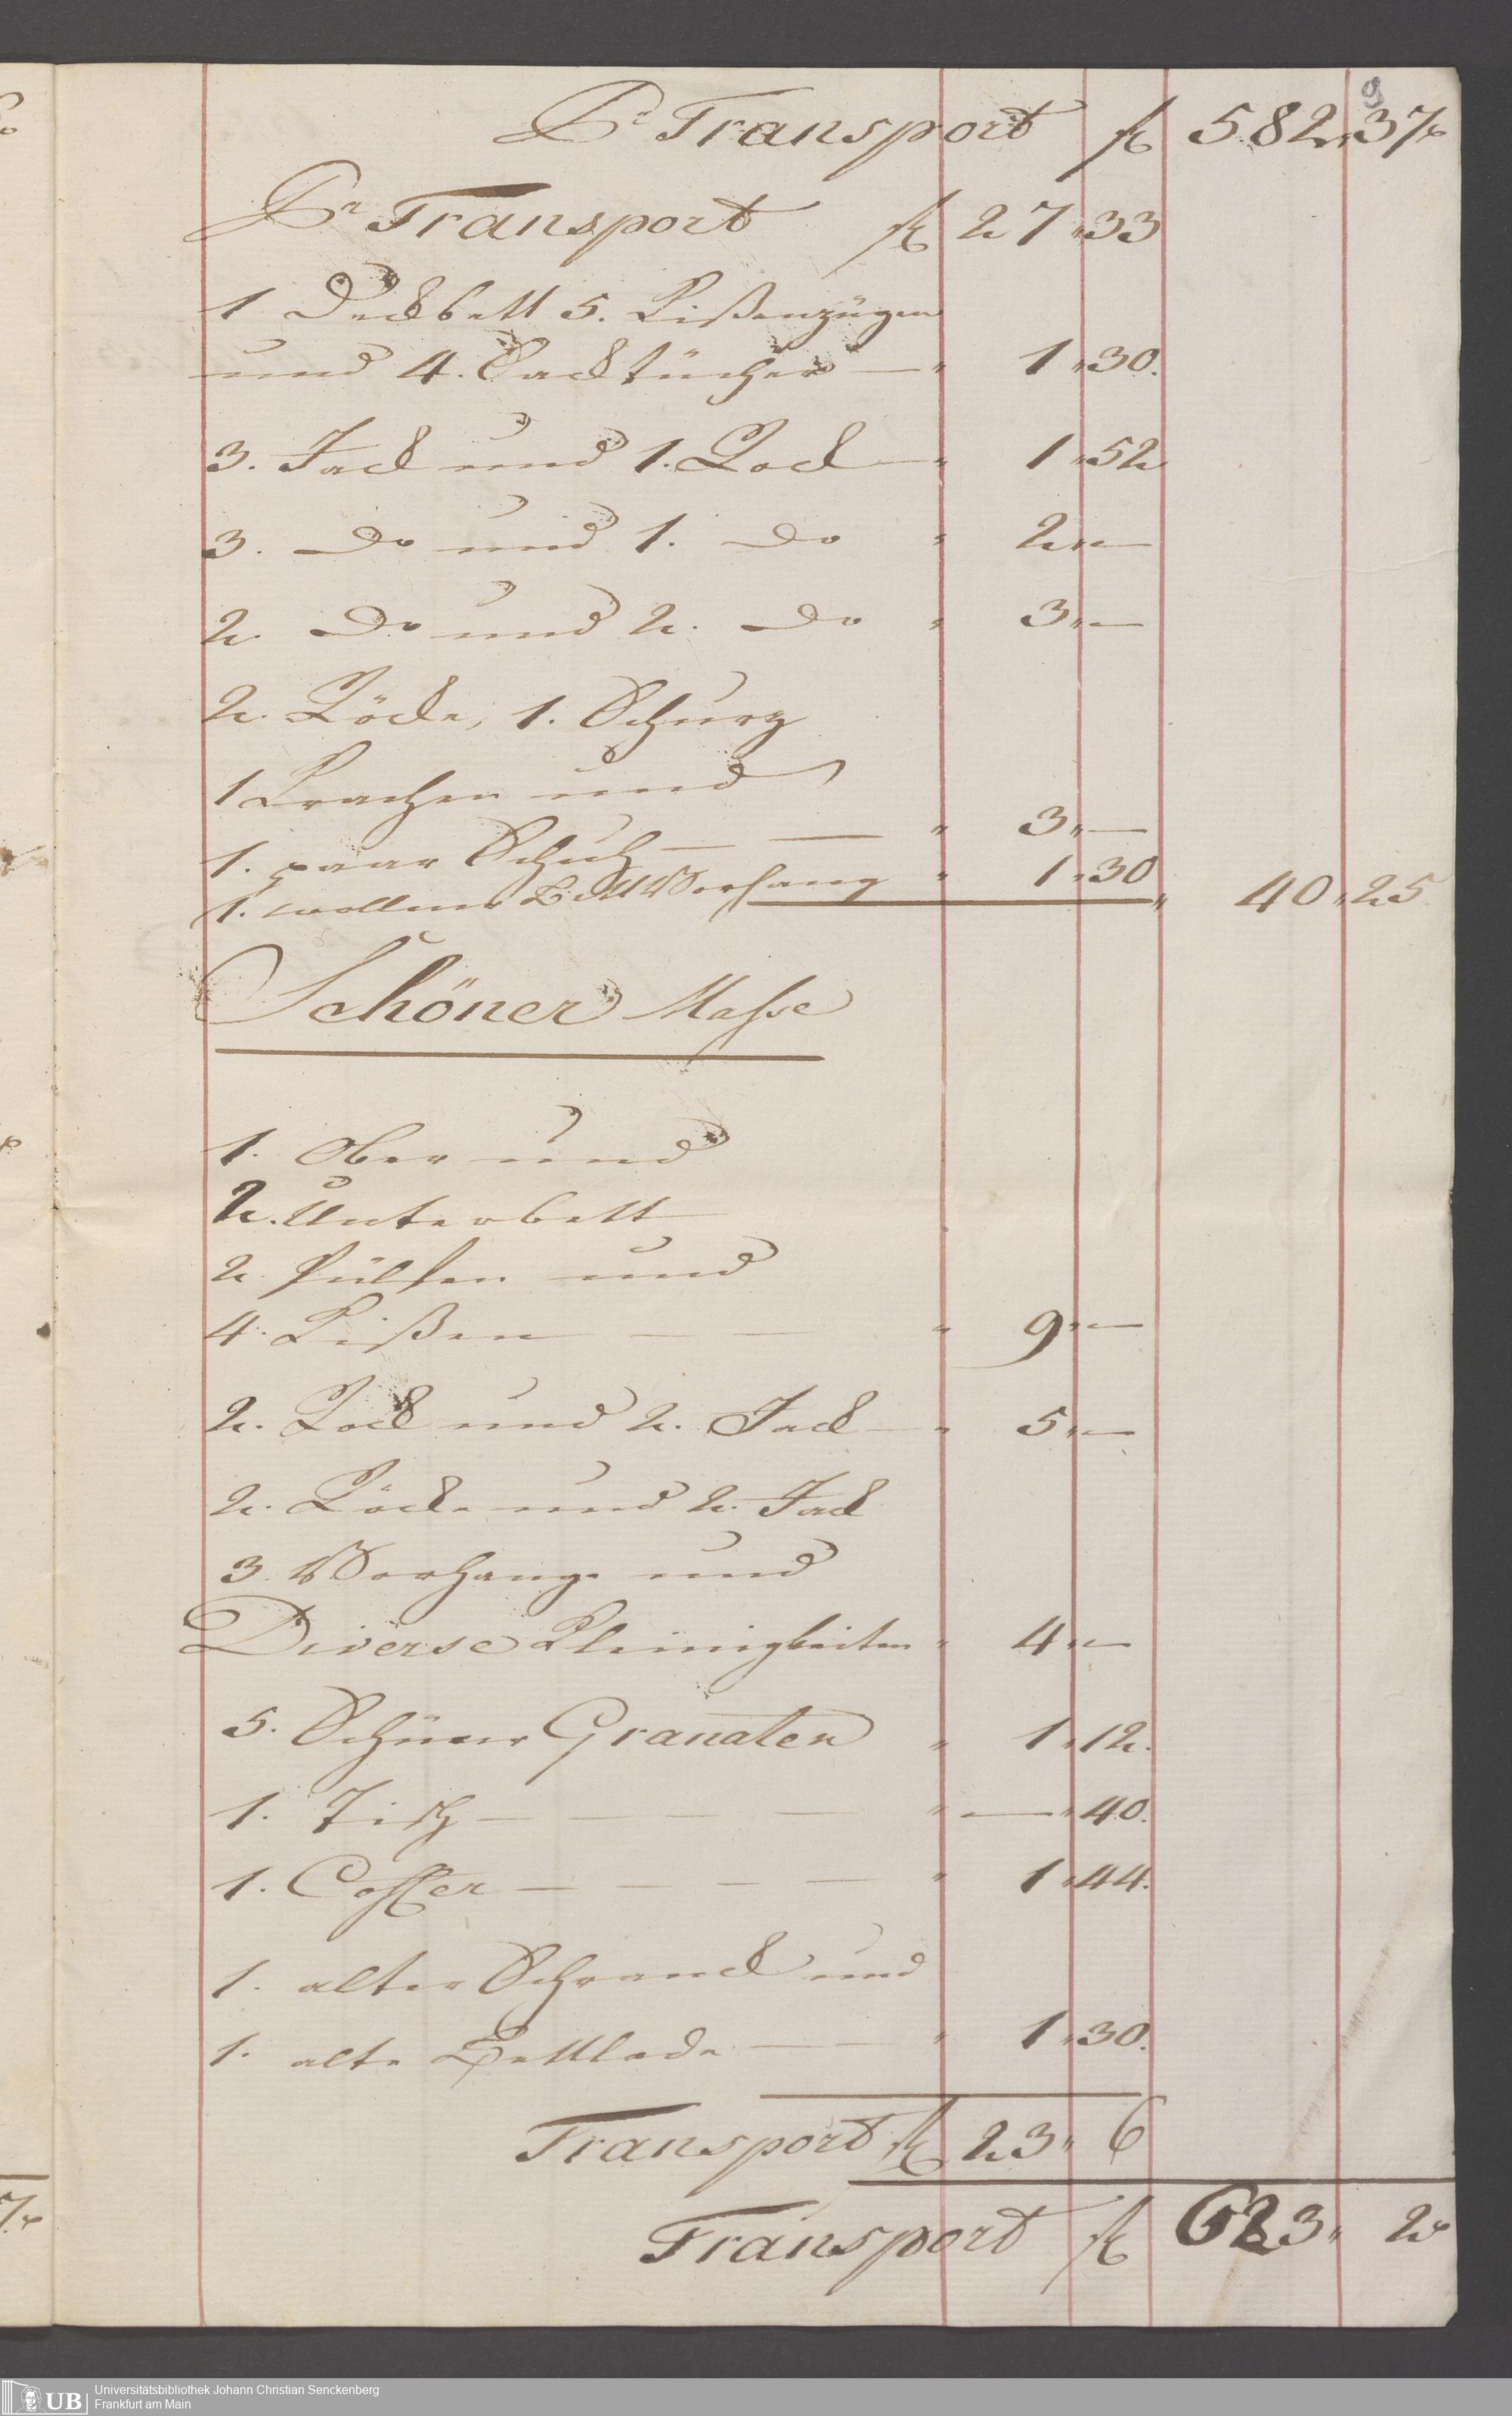 9
Pr Transport f 582 „ 37 x
Pr Transport f 27 „ 33
1 Deckbett 5. Kißenzügen
und 4. Sacktücher — „ 1 „ 30.
3. Jack und 1. Rock — „ 1 „ 52
3. Do und 1. Do „ 2 „ —
2. Do und 2. Do „ 3 „ —
2. Röcke, 1. Schurz
1 Krachen und
1. paar Schuh — — „ 3 „ —
1. wollner Bett Vorhang „ 1 „ 30 „ 40 „ 25
Schöner Masse
1. Ober und
2. Unterbett
2 Pülfen und
4. Kißen — — „ 9 „ —
2. Rock und 2. Jack — „ 5 „ —
2. Röcke und 2. Jack
3. Vorhang und
Diverse Kleinigkeiten „ 4 „ —
5. Schnur Granaten „ 1 „ 12.
1. Tisch — — — — „ — „ 40.
1. Coffer — — — — „ 1 „ 44.
1. alter Schranck und
1. alte Bettlade — — „ 1 „ 30.
Transport f 23 „ 6
Transport f 623 „ 2 x
UB
Universitätsbibliothek Johann Christian Senckenberg
Frankfurt am Main